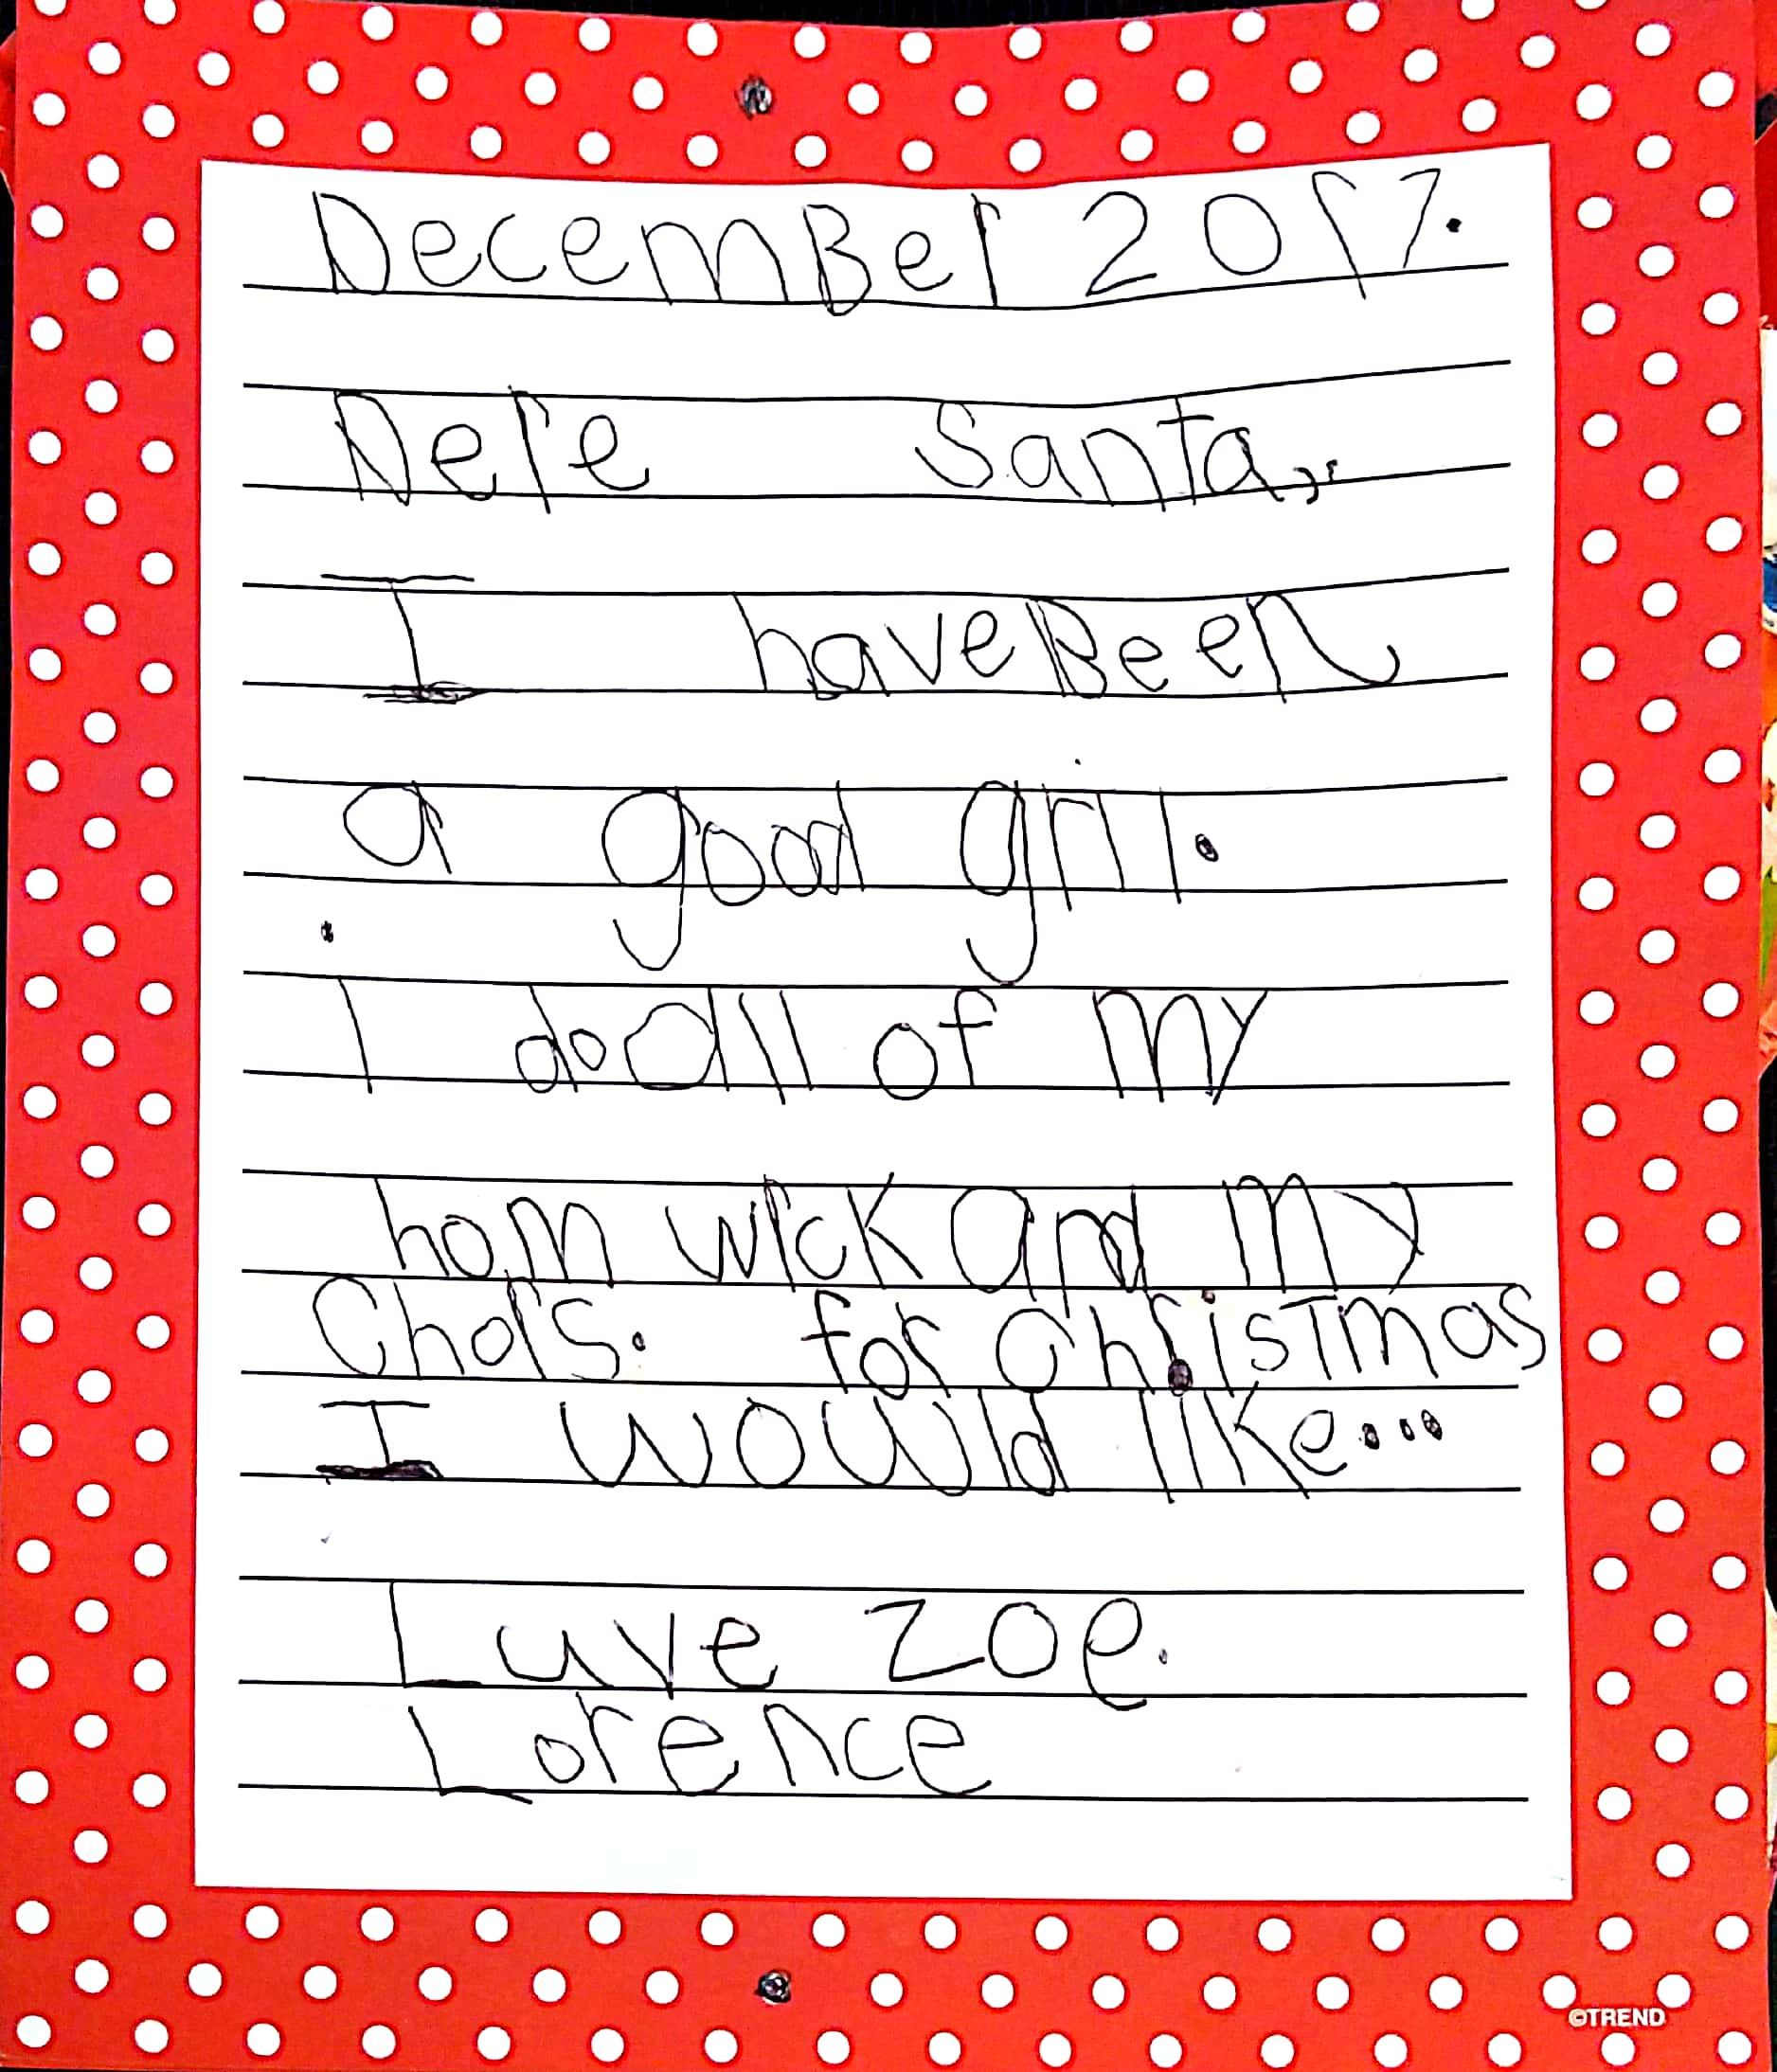 DecemBer 2017.
Dere Santa,,
I have Been
a good gril.
I do all of my
hom wrck and my
Chors. for Christmas
I would like...
Luve Zoe.
Lorence
©TREND